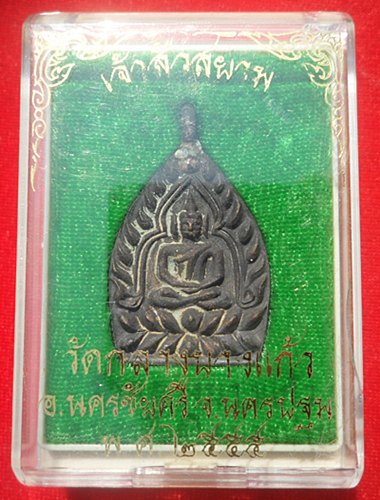 เจ้าสัวสยาม
วัดกลางบางแก้ว
อ.นครชัยศรี จ.นครปฐม
พ.ศ.๒๕๕๕